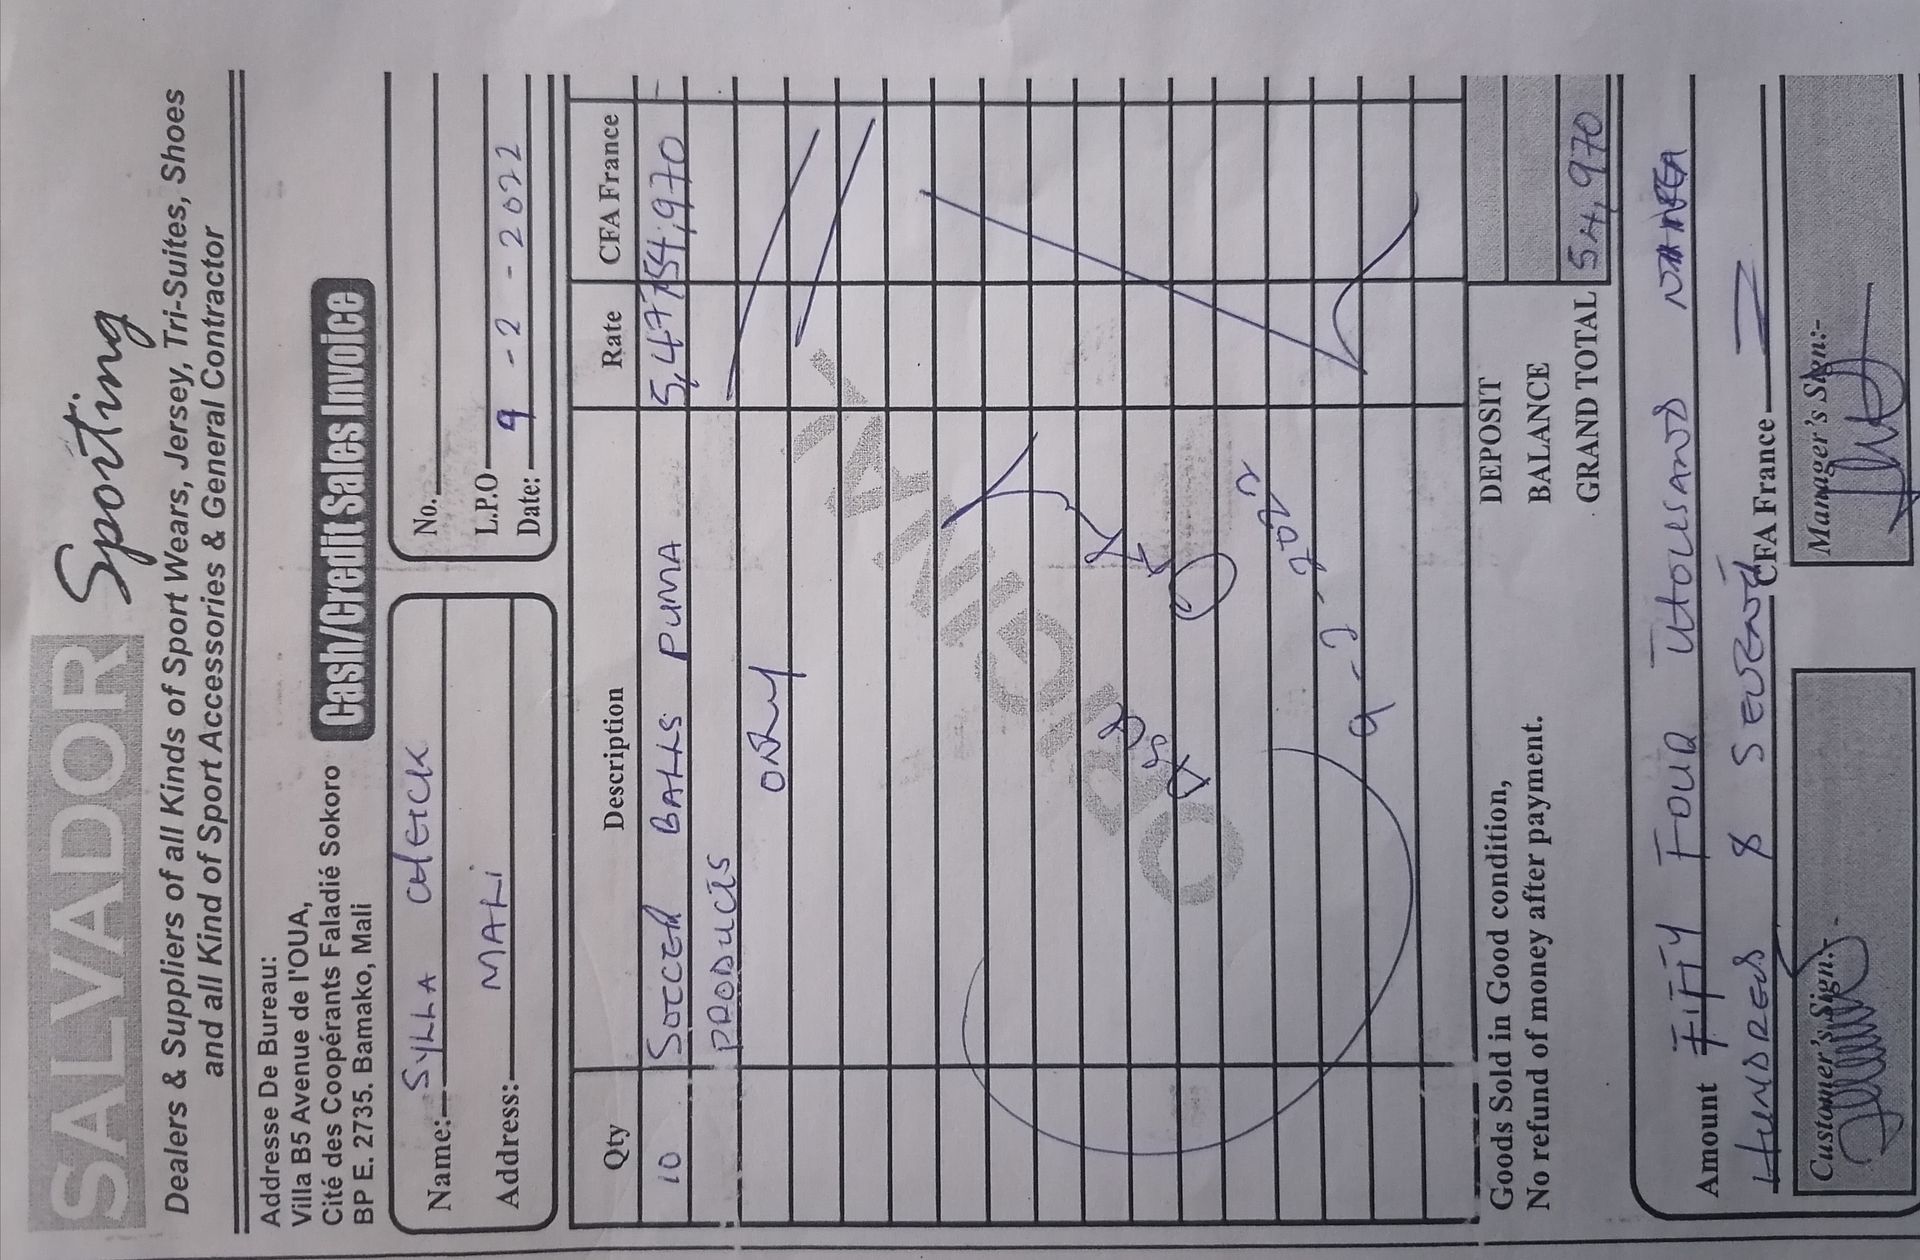 SALVADOR Sporting
Dealers & Suppliers of all Kinds of Sport Wears, Jersey, Tri-Suites, Shoes
and all Kind of Sport Accessories & General Contractor
Addresse De Bureau:
Villa B5 Avenue de l'OUA,
Cité des Coopérants Faladié Sokoro
BP E. 2735. Bamako, Mali
Cash/Credit Sales Invoice
Name: SYLLA CHEICK
Address: MALI
No.
L.P.O
Date: 9 - 2 - 2022
Qty Description Rate CFA France
10 SOCCER BALLS PUMA 5,497 54,970
PRODUCTS
ONLY
9 - 2 - 2022
Goods Sold in Good condition,
No refund of money after payment.
DEPOSIT
BALANCE
GRAND TOTAL 54,970
Amount FIFTY FOUR THOUSAND
HUNDRED & SEVENTY CFA France
Customer's Sign:-
Manager's Sign:-